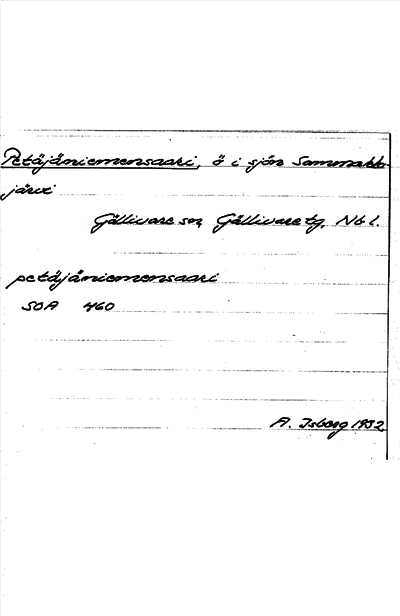 Petäjäniemensaari, ö i sjön Sammakko-
järvi
Gällivare sn, Gällivare tg, Nb l.
petäjäniemensaari
SOA 460
A. Isberg 1932